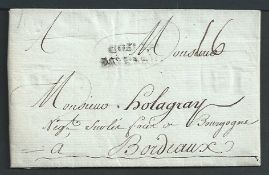 A Monsieur 16
Monsieur Holagray
Negt. Sur les de Bourgogne
à Bordeaux